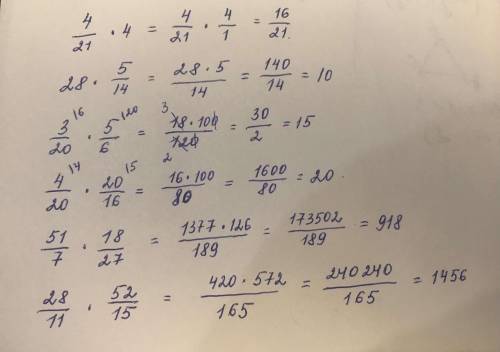 4/21 · 4 = 4/21 · 4/1 = 16/21.
28 · 5/14 = 28·5/14 = 140/14 = 10
3/20 ^16 · 5/6 ^120 = 18·100/120 3 2 = 30/2 = 15
4/20 ^14 · 20/16 ^15 = 16·100/80 = 1600/80 = 20.
51/7 · 18/27 = 1377·126/189 = 173502/189 = 918
28/11 · 52/15 = 420·572/165 = 240240/165 = 1456